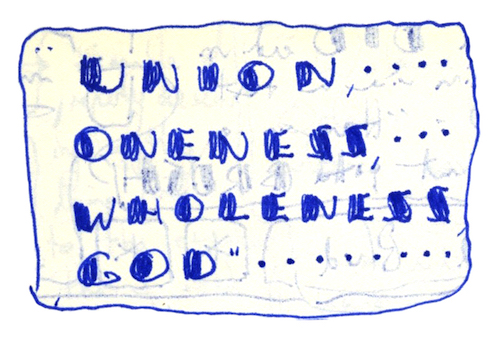 "UNION ....
ONENESS, ...
WHOLENESS
GOD" .........